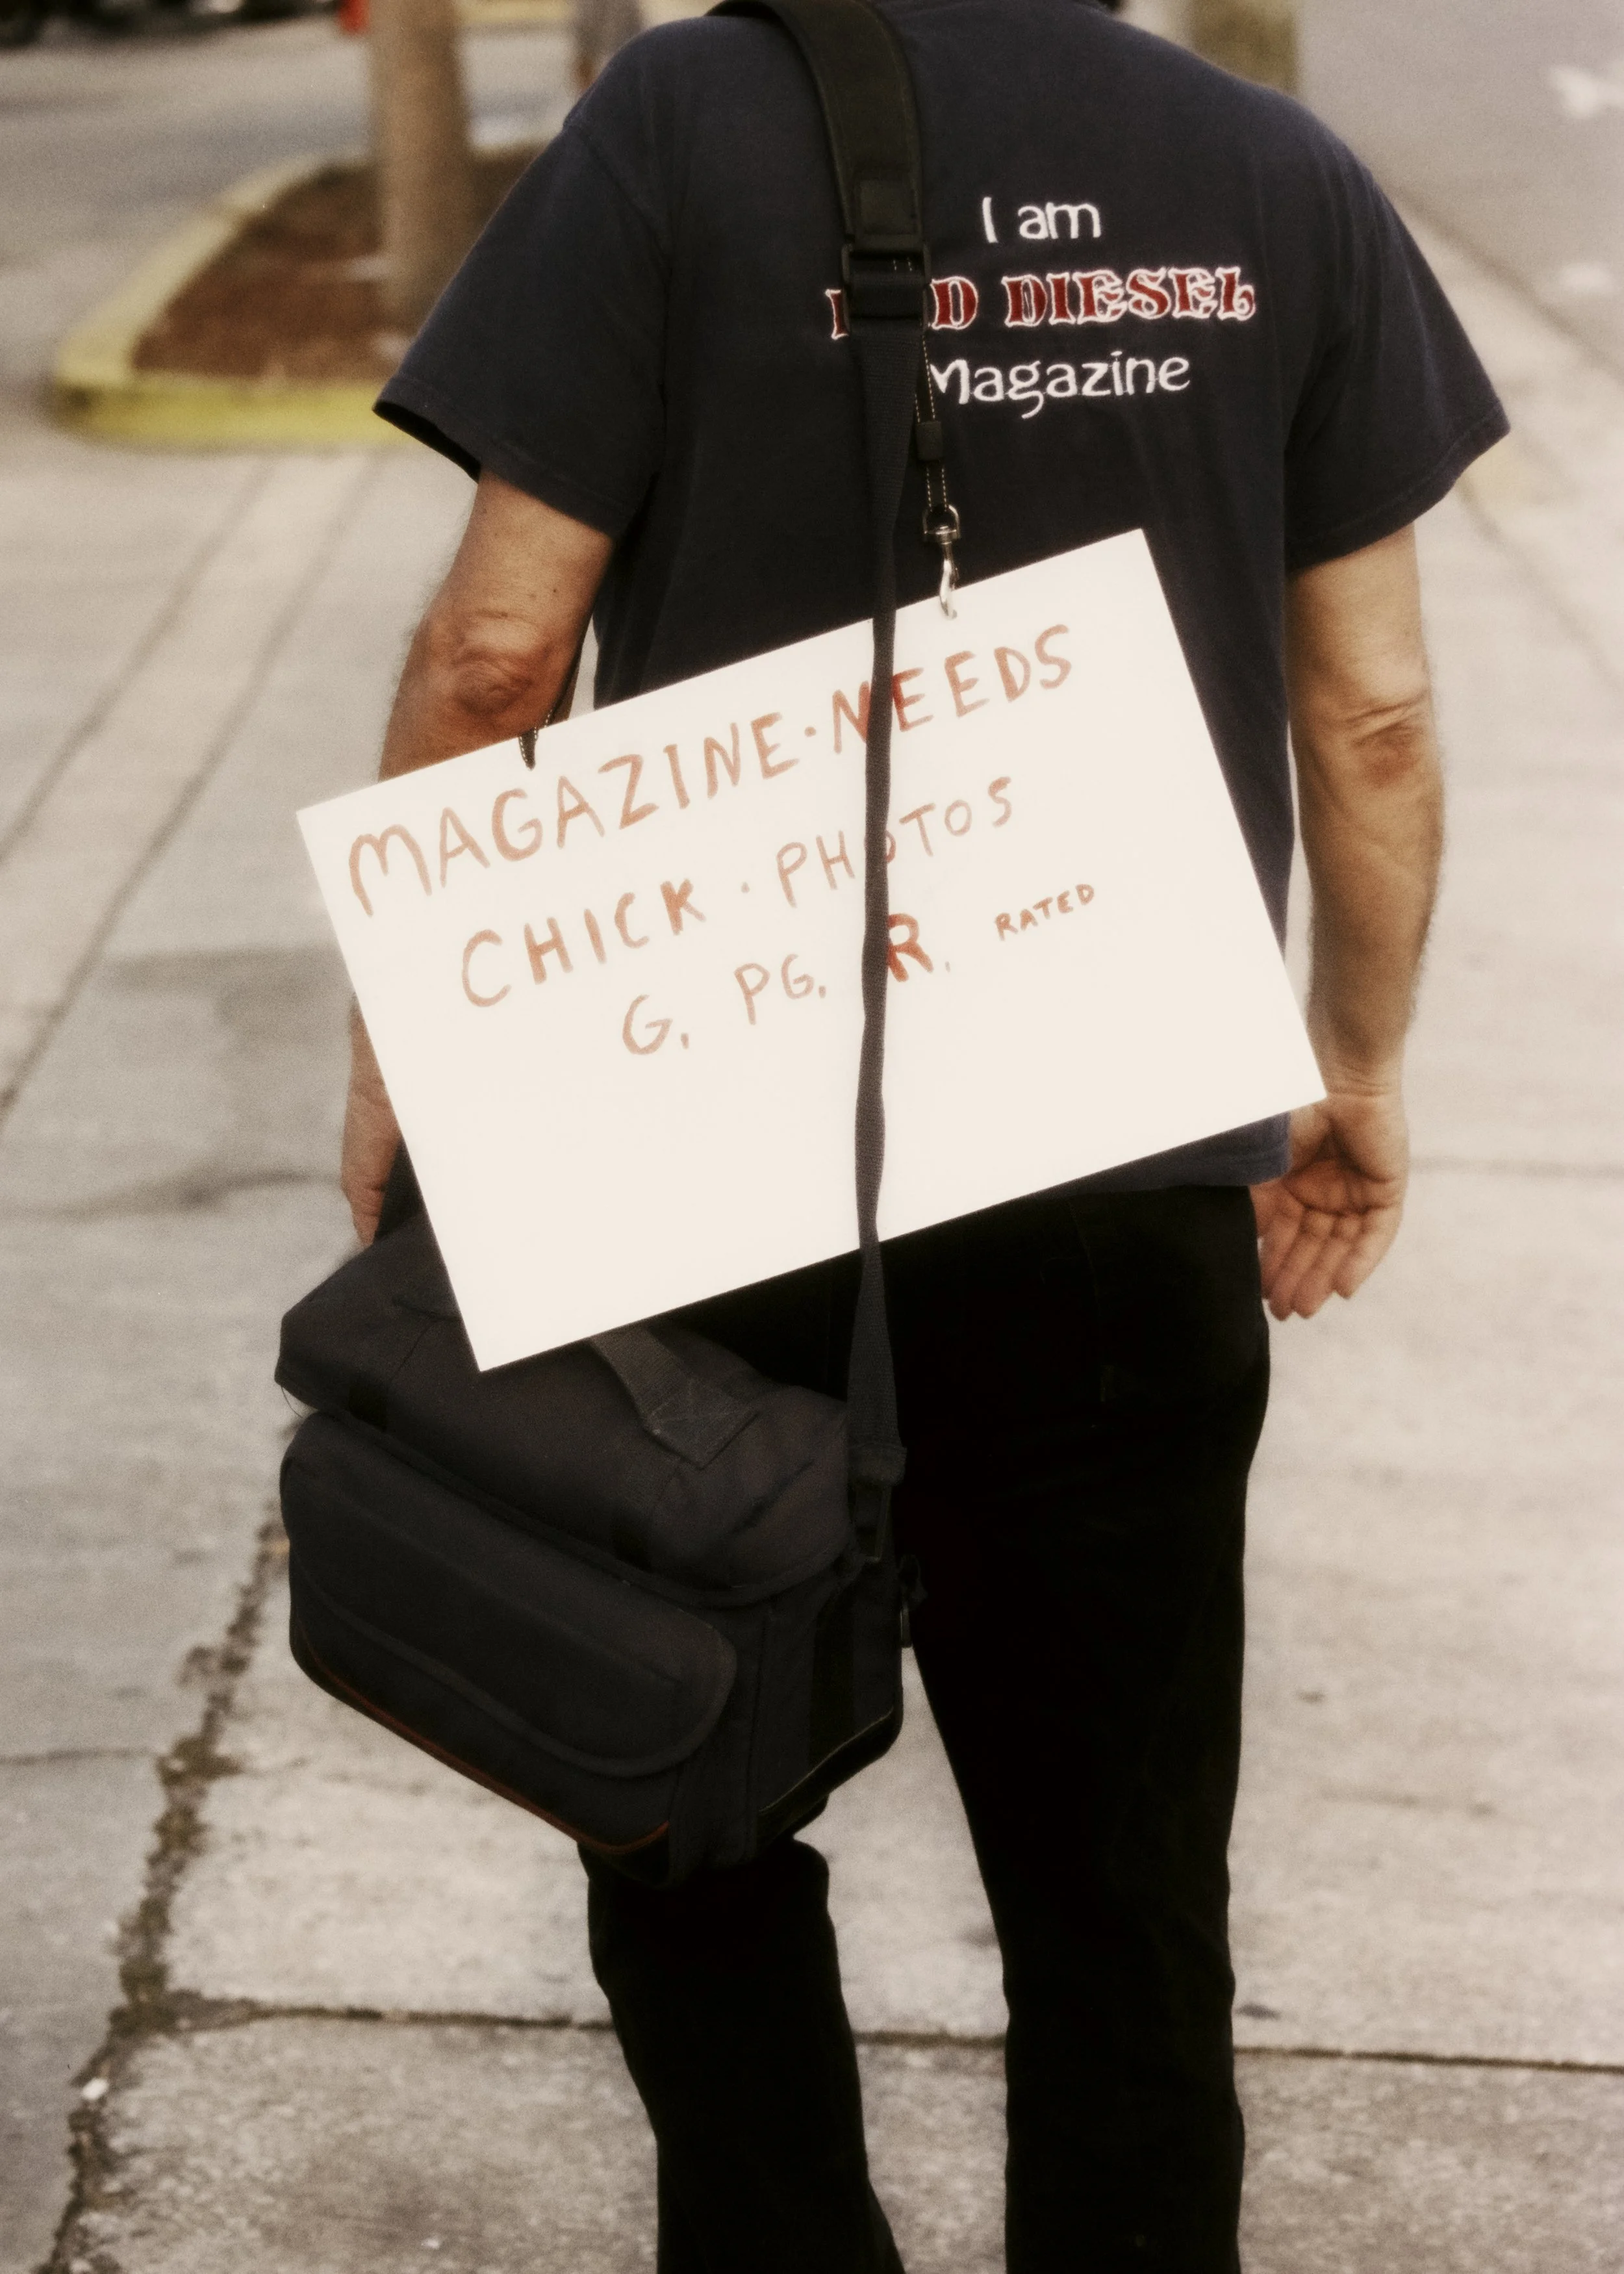 I am
DIESEL
Magazine
MAGAZINE·NEEDS
CHICK·PHOTOS
G. PG. R. RATED